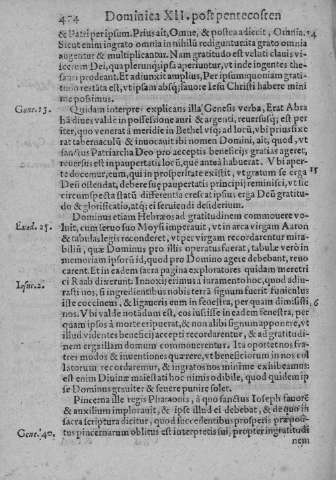 474 Dominica XII. post pentecosten
& Patri per ipsum. Prius ait, Omne, & postea adiecit, Omnia. 14
Sicut enim ingrato omnia in nihilū rediguntur ita grato omnia
augentur & multiplicantur. Nam gratitudo est veluti clauis vi-
scerum Dei, qua plerunq; ipsa aperiuntur, vt inde ingentes the-
sauri prodeant. Et adiunxit amplius, Per ipsum quoniam gratitudo
restata est, vt ipsam absq; fauore Iesu Christi habere mini
me possimus.
Genes.13. Quidam interpres explicans illa Genesis verba, Erat Abra
hā diues valde in possessione auri & argenti, reuersusq; est per
iter, quo venerat à meridie in Bethel vsq; ad locū, vbi prius fixe
rat tabernaculū & inuocauit ibi nomen Domini, ait, quod, vt
sanctus Patriarcha Deo pro acceptis beneficijs gratias ageret,
reuersus est in paupertatis locū, que anteà habuerat. Vbi aper-
te docemur, eum, qui in prosperitate existit, vt gratum se erga 15
Deū ostendat, debere suę paupertatis principij reminisci, vt sic
circumspecta statū differentia crescat ipsius erga Deū gratitu-
do & glorificatio, atq; ei seruiendi desiderium.
Dominus etiam Hebræos ad gratitudinem commouere vo-
Exod. 25. luit, cum seruo suo Moysi imperauit, vt in arca virgam Aaron
& tabulas legis reconderet, vt per virgam recordarentur mira-
biliū, quæ Dominus pro illis operatus fuerat, tabulæ verò in
memoriam ipsorū id, quod pro Domino agere debebant, reuo
carent. Et in eadem sacra pagina exploratores quidam meretri
Iosue.2. ci Raab dixerunt: Innoxij erimus à iuramento hoc, quod adiu-
rasti nos, si ingredientibus nobis terrā signum fuerit funiculus
iste coccineus, & ligaueris eum in fenestra, per quam dimisisti 6
nos. Vbi valde notādum est, eos iussisse in eadem fenestra, per
quam ipsos à morte eripuerat, & non alibi signum apponere, vt
illud videntes beneficij accepti recordarentur, & ad gratitudi-
nem erga illam domum commouerentur. Ita oportet nos fra-
tres modos & inuentiones quærere, vt beneficiorum in nos col
latorum recordaremur, & ingratos nos minimè exhibeamus:
est enim Diuinæ maiestati hoc nimis odibile, quod quidem ip
se Dominus grauiter & seuerè punire solet.
Pincerna ille regis Pharaonis, à quo sanctus Ioseph fauorē
& auxilium implorauit, & ipse illud ei debebat, & de quo in
sacra scriptura dicitur, quod succedentibus prosperis præposi-
Gene.40. tus pincernarum oblitus est interpretis sui, propter ingratitudi
nem